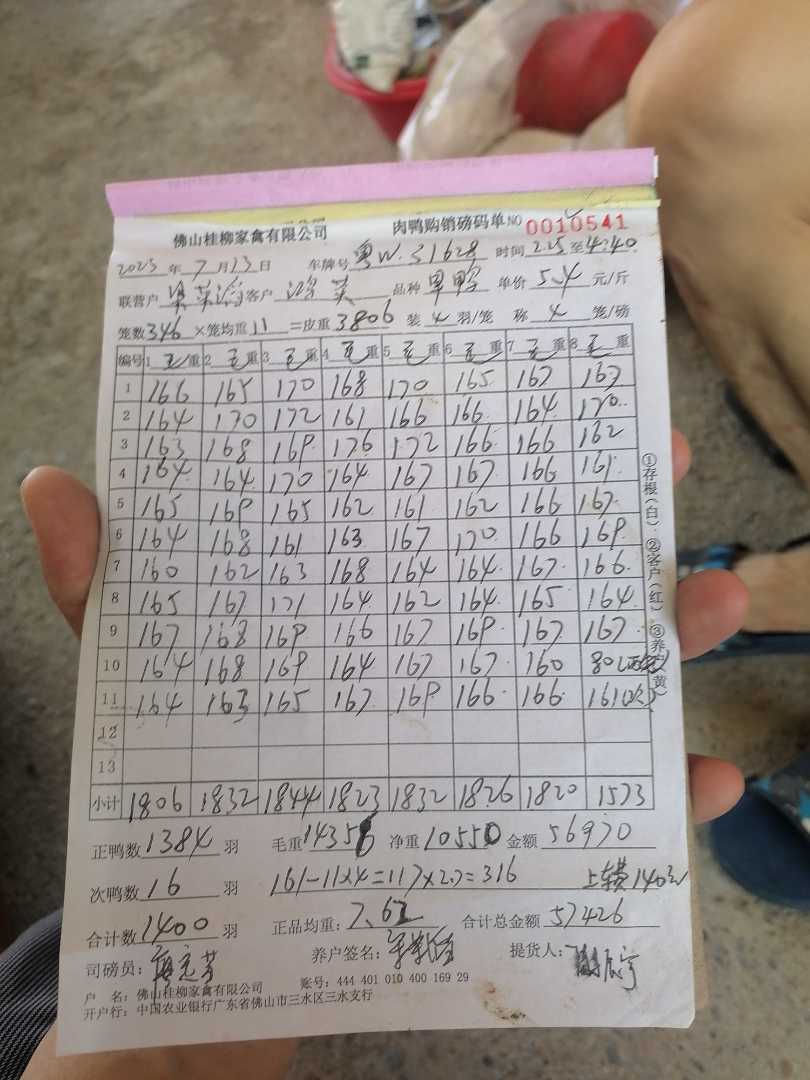 佛山桂柳家禽有限公司 肉鸭购销磅码单 NO 0010541
2023年7月13日 车牌号 粤W.31628 时间 2:25 至 4:40
联营户 客户 鸿英 品种 单价 5.4 元/斤
笼数 346 ×笼均重 11 =皮重 3806 装 4 羽/笼 称 4 笼/磅
编号 1 毛重 2 毛重 3 毛重 4 毛重 5 毛重 6 毛重 7 毛重 8 毛重
1 166 165 170 168 170 165 167 167
2 164 170 172 161 166 166 164 170
3 163 168 169 176 172 166 166 162
4 164 164 170 164 167 167 166 161
5 165 169 165 162 161 162 166 167
6 164 168 161 163 167 170 166 169
7 160 162 163 168 164 164 167 166
8 165 167 171 164 162 164 165 164
9 167 168 169 166 167 169 167 167
10 164 168 169 164 167 167 160 80
11 164 163 165 167 169 166 166 161(次)
12
13
小计 1806 1832 1844 1823 1832 1826 1820 1573
正鸭数 1384 羽 毛重 14356 净重 10550 金额 56970
次鸭数 16 羽 161-11×4=117×2.7=316 上车费140元
合计数 1400 羽 正品均重: 7.62 合计总金额 57426
司磅员: 养户签名: 提货人:
户 名: 佛山桂柳家禽有限公司 账号: 444 401 010 400 169 29
开户行: 中国农业银行广东省佛山市三水区三水支行
①存根(白) ②客户(红) ③养户(黄)